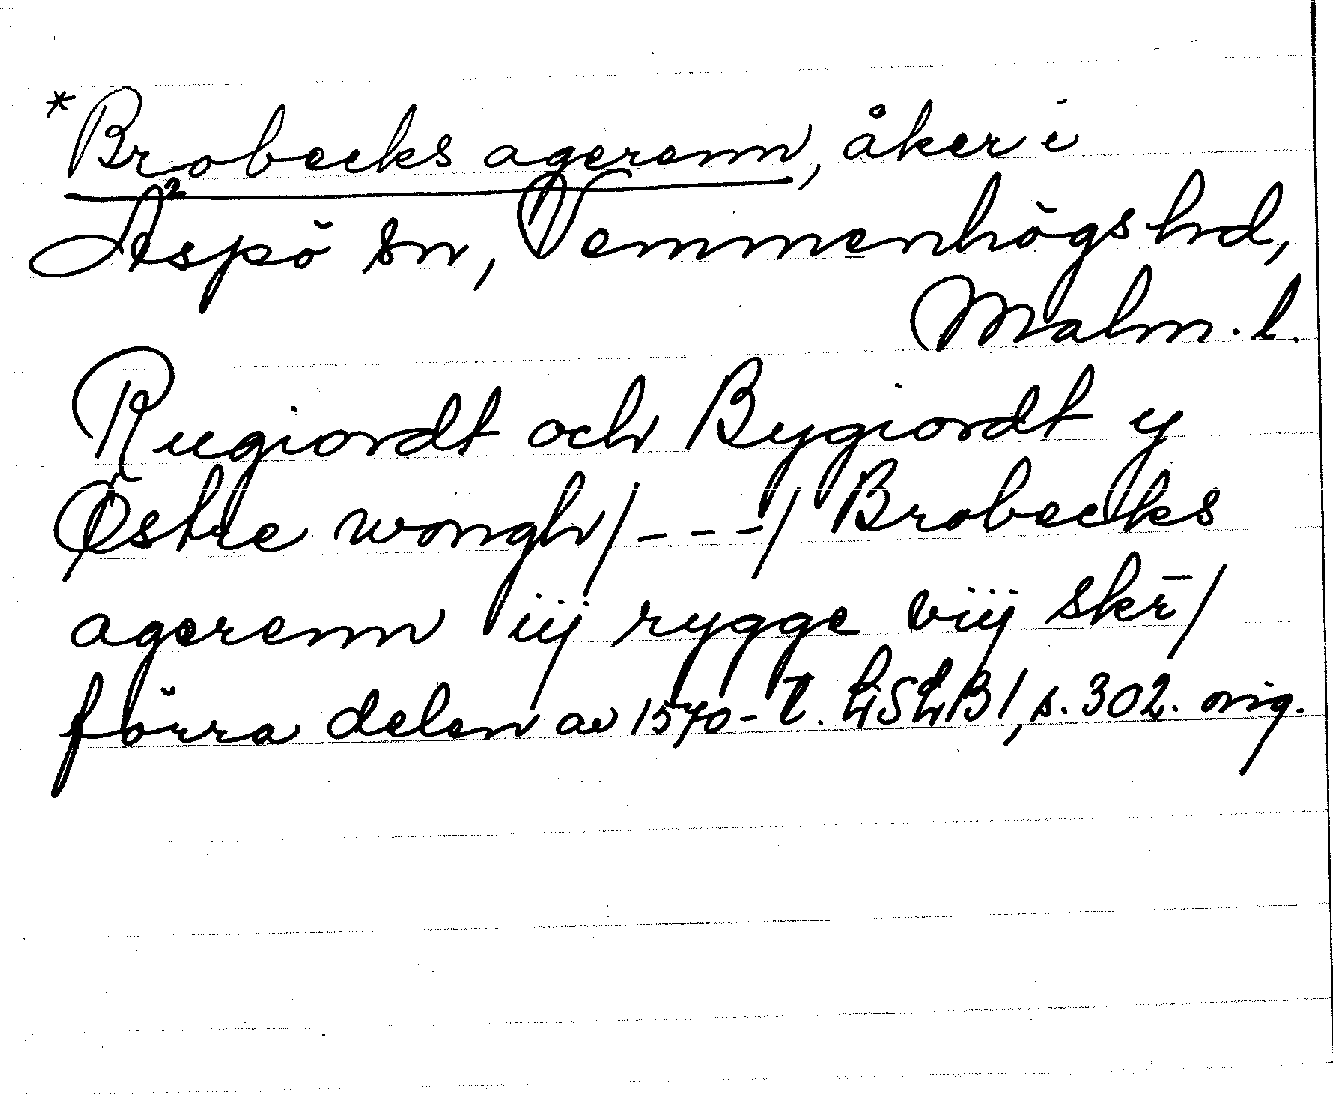 *Brobecks agerenn, åker i
Äspö sn, Vemmenhögs hd,
Malm. l.
Rugiordt och Bygiordt y
Østre wongh/---/ Brobecks
agerenn iij rygge viij skr̄/
förra delen av 1570-t. LiSLB1, s. 302. orig.